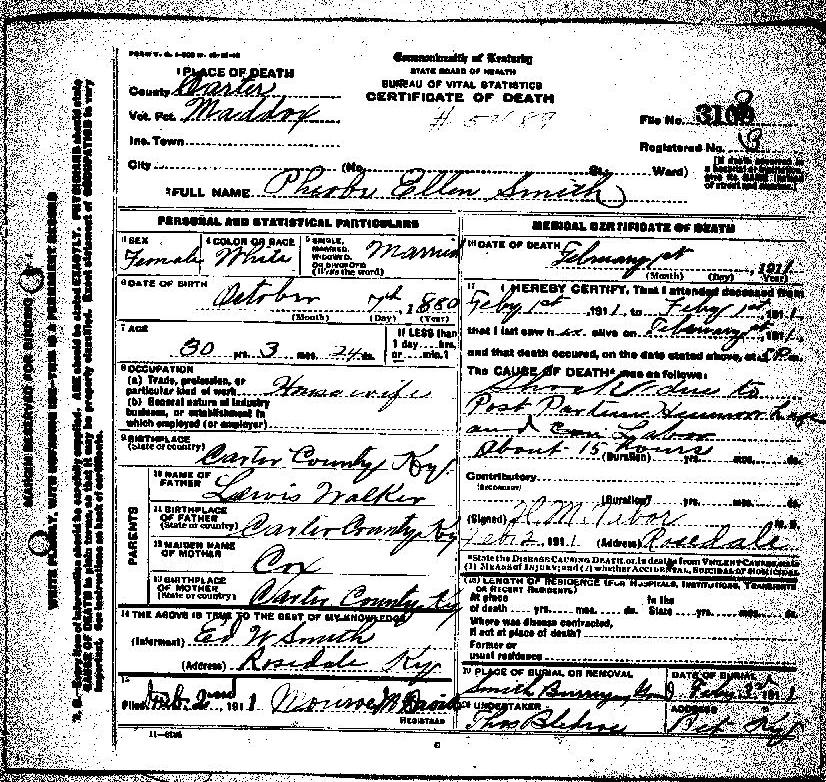 Commonwealth of Kentucky
STATE BOARD OF HEALTH
BUREAU OF VITAL STATISTICS
CERTIFICATE OF DEATH
1 PLACE OF DEATH
County Carter
Vot. Pct. Maddox
Inc. Town
City (No. St. Ward)
File No. 3108
Registered No.
2 FULL NAME Pheoba Ellen Smith
PERSONAL AND STATISTICAL PARTICULARS
3 SEX Female
4 COLOR OR RACE White
5 SINGLE, MARRIED, WIDOWED, OR DIVORCED (Write the word) Married
6 DATE OF BIRTH October 7th, 1880
(Month) (Day) (Year)
7 AGE 30 yrs. 3 mos. 24 ds.
If LESS than 1 day hrs. or min.?
8 OCCUPATION
(a) Trade, profession, or particular kind of work Housewife
(b) General nature of industry business, or establishment in which employed (or employer)
9 BIRTHPLACE (State or country) Carter County Ky.
PARENTS
10 NAME OF FATHER Lewis Walker
11 BIRTHPLACE OF FATHER (State or country) Carter County Ky
12 MAIDEN NAME OF MOTHER Cox
13 BIRTHPLACE OF MOTHER (State or country) Carter County Ky
14 THE ABOVE IS TRUE TO THE BEST OF MY KNOWLEDGE
(Informant) Ed W Smith
(Address) Rosedale Ky
15
Filed 2nd 1911 Monroe
REGISTRAR
MEDICAL CERTIFICATE OF DEATH
16 DATE OF DEATH February 1st, 1911
(Month) (Day) (Year)
17 I HEREBY CERTIFY, That I attended deceased from
Feby 1st 1911, to Feby 1st 1911,
that I last saw her alive on February 1st 1911,
and that death occured, on the date stated above, at
The CAUSE OF DEATH* was as follows:
Shock due to
Post Partum Hemmorhage
and Labor
About 15 hours
(Duration) yrs. mos. ds.
Contributory
(SECONDARY)
(Duration) yrs. mos. ds.
(Signed) H. M. M. D.
Feb 2 1911 (Address) Rosedale
*State the DISEASE CAUSING DEATH, or, in deaths from VIOLENT CAUSES, state
(1) MEANS OF INJURY; and (2) whether ACCIDENTAL, SUICIDAL OR HOMICIDAL
18 LENGTH OF RESIDENCE (FOR HOSPITALS, INSTITUTIONS, TRANSIENTS OR RECENT RESIDENTS)
At place of death yrs. mos. ds. In the State yrs. mos. ds.
Where was disease contracted, if not at place of death?
Former or usual residence
19 PLACE OF BURIAL OR REMOVAL Smith
DATE OF BURIAL Feby 3rd 1911
20 UNDERTAKER Thos
ADDRESS Ky
MARGIN RESERVED FOR BINDING
WRITE PLAINLY, WITH UNFADING INK—THIS IS A PERMANENT RECORD
N. B.—Every item of information should be carefully supplied. AGE should be stated EXACTLY. PHYSICIANS should state
CAUSE OF DEATH in plain terms, so that it may be properly classified. Exact statement of OCCUPATION is very
important. See instructions on back of certificate.